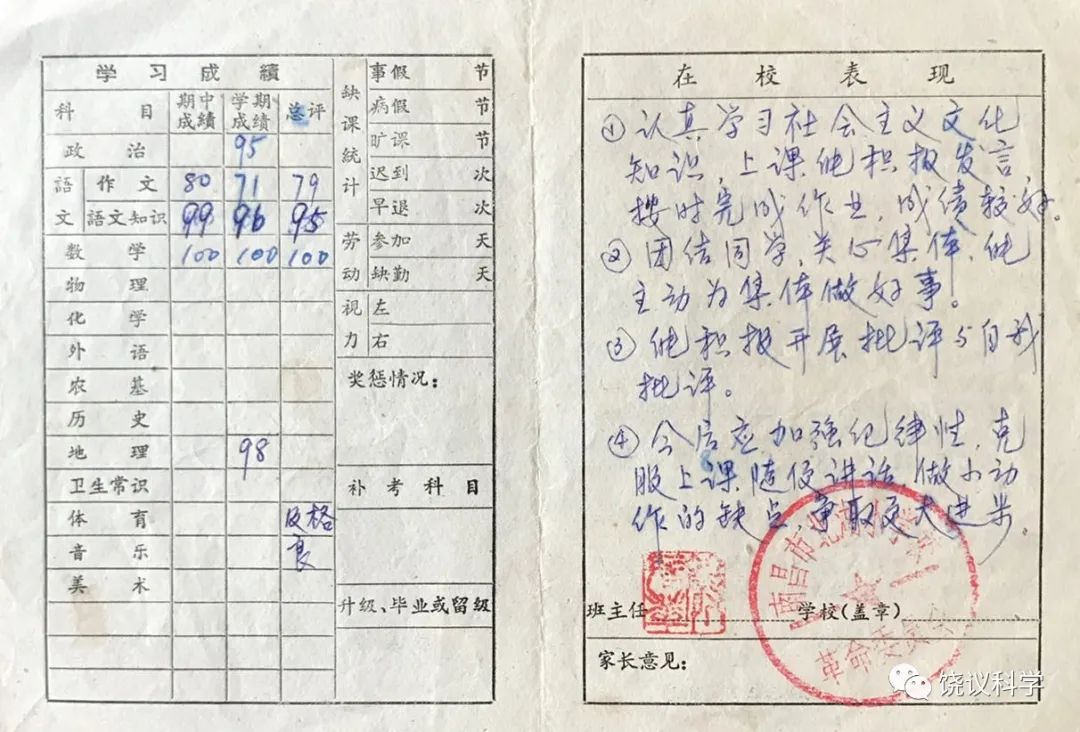 学习成績
科目 期中成績 学期成績 总评
政治 95
語文 作文 80 71 79
語文知识 99 96 95
数学 100 100 100
物理
化学
外语
农基
历史
地理 98
卫生常识
体育 及格
音乐 良
美术
缺课统计
事假 节
病假 节
旷课 节
迟到 次
早退 次
劳动
参加 天
缺勤 天
视力
左
右
奖惩情况：
补考科目
升级、毕业或留级
在校表现
①认真学习社会主义文化
知识，上课能积极发言，
按时完成作业，成绩较好。
②团结同学，关心集体，能
主动为集体做好事。
③能积极开展批评与自我
批评。
④今后应加强纪律性，克
服上课随便讲话 做小动
作的缺点，争取更大进步。
班主任
学校(盖章)
南昌市北
革命委员会
家长意见：
饶议科学